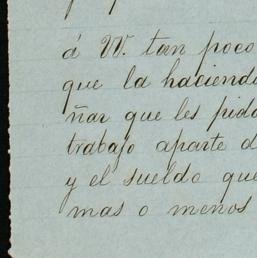 á W. tan poco
que la haciend
ñar que les pid
trabajo aparte d
y el sueldo que
mas o menos